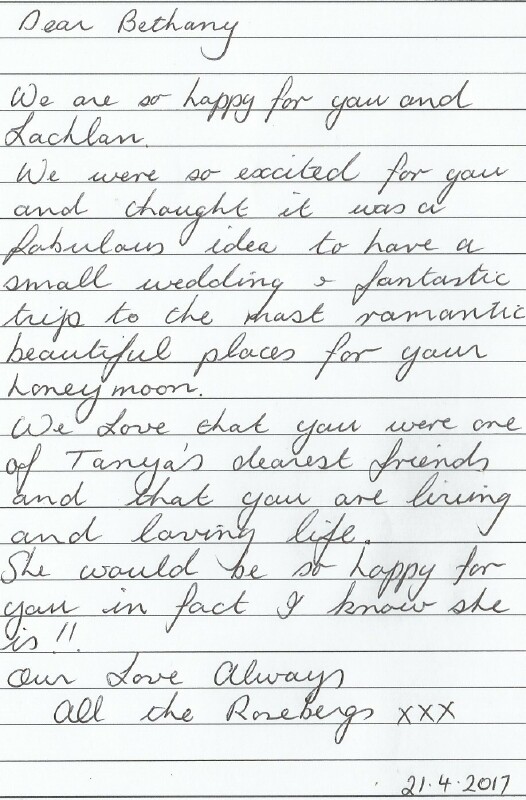 Dear Bethany
We are so happy for you and
Lachlan.
We were so excited for you
and thought it was a
fabulous idea to have a
small wedding & fantastic
trip to the most romantic
beautiful places for your
honeymoon.
We Love that you were one
of Tanya's dearest friends
and that you are living
and loving life.
She would be so happy for
you in fact I know she
is!!
Our Love Always
All the Rosebergs xxx
21.4.2017